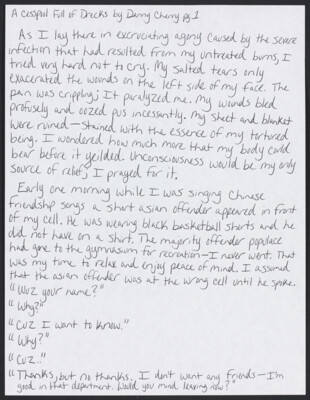 A Cesspool Full of Drecks by Danny Cherry pg.1
As I lay there in excruciating agony caused by the severe
infection that had resulted from my untreated burns, I
tried very hard not to cry. My salted tears only
exacerated the wounds on the left side of my face. The
pain was crippling; It paralyzed me. My wounds bled
profusely and oozed pus incessantly. My sheet and blanket
were ruined—stained with the essence of my tortured
being. I wondered how much more that my body could
bear before it yeilded. Unconsciousness would be my only
source of relief; I prayed for it.
Early one morning while I was singing Chinese
friendship songs a short asian offender appeared in front
of my cell. He was wearing black basketball shorts and he
did not have on a shirt. The majority offender populace
had gone to the gymnasium for recreation—I never went. That
was my time to relax and enjoy peace of mind. I assumed
that the asian offender was at the wrong cell until he spoke.
"Wuz your name?"
"Why?"
"Cuz I want to know."
"Why?"
"Cuz."
"Thanks, but no thanks. I don't want any friends—I'm
good in that department. Would you mind leaving now?"